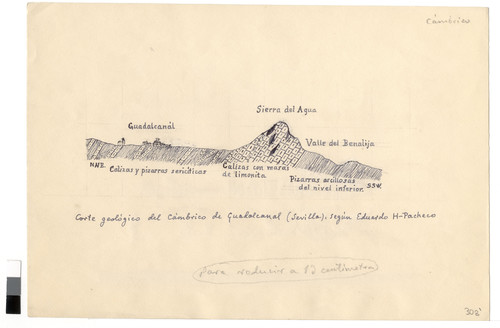 Cámbrico
Sierra del Agua
Guadalcanál
Valle del Benalija
N.N.E.
Calizas y pizarras sericíticas
Calizas con masas
de limonita
Pizarras arcillosas
del nivel inferior.
S.S.W.
Corte geológico del Cámbrico de Guadalcanal (Sevilla), según Eduardo H-Pacheco
para reducir a 12 centímetros
302